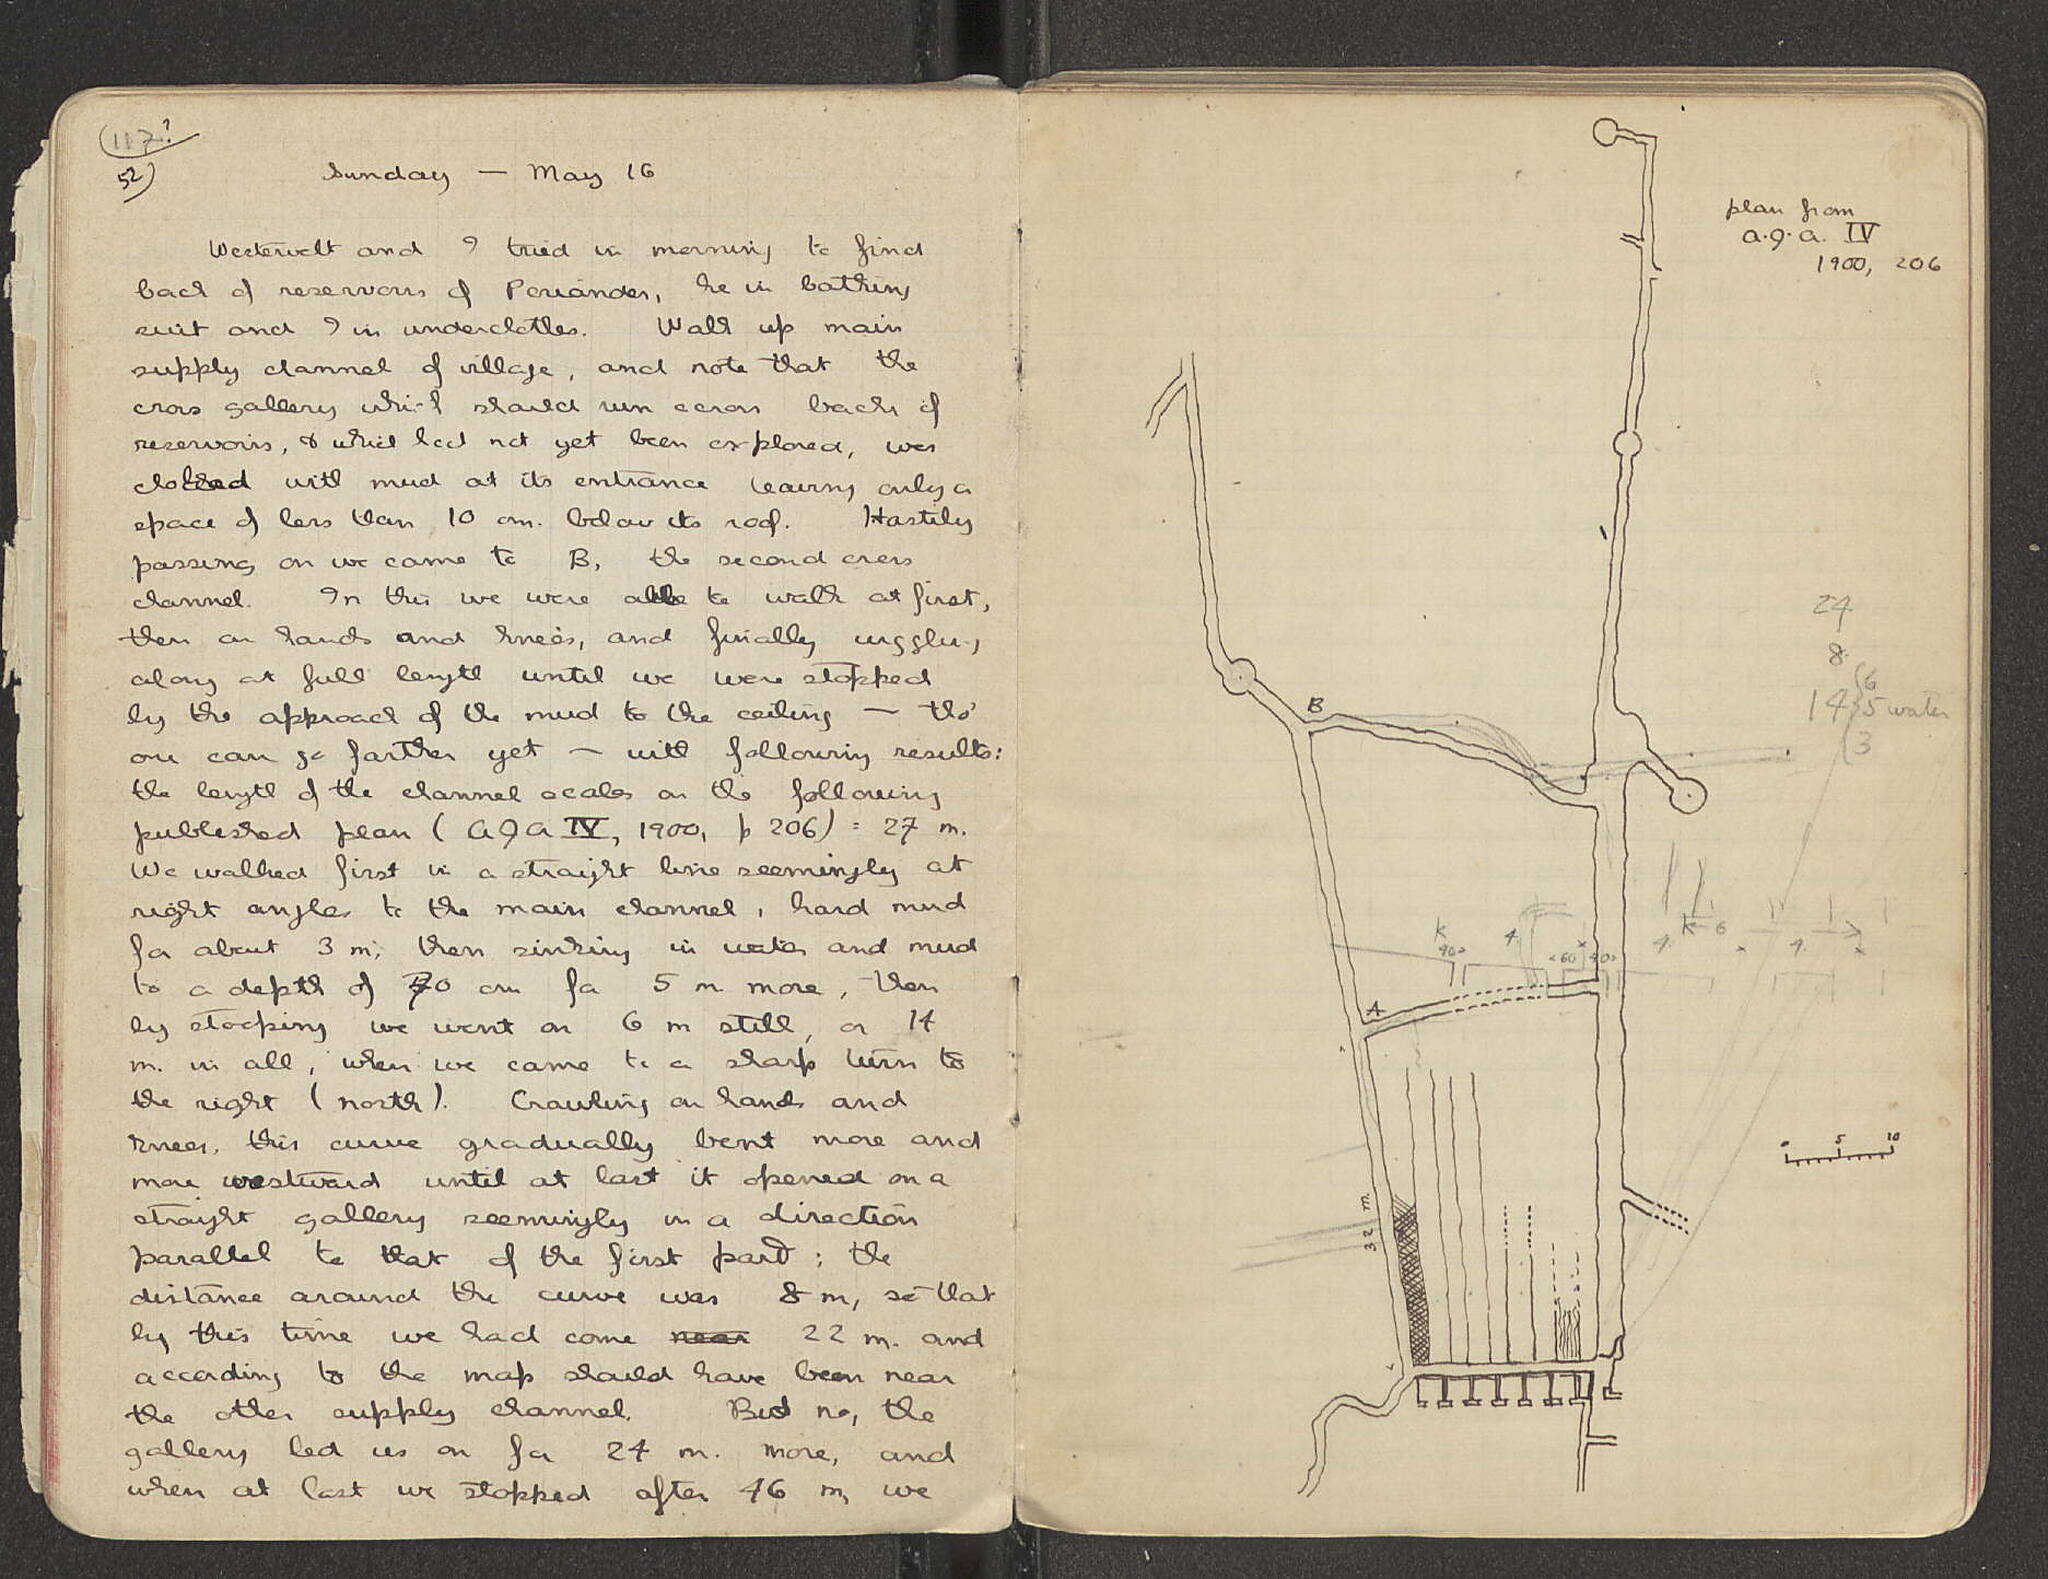 (117?
52)
Sunday — May 16
Westervelt and I tried in morning to find
back of reservoirs of Periander, he in bathing
suit and I in underclothes. Walk up main
supply channel of village, and note that the
cross gallery which should run across back of
reservoirs, & which had not yet been explored, was
choked with mud at its entrance leaving only a
space of less than 10 cm. below its roof. Hastily
passing on we came to B, the second cross
channel. In this we were able to walk at first,
then on hands and knees, and finally wiggling
along at full length until we were stopped
by the approach of the mud to the ceiling — tho'
one can go farther yet — with following results:
the length of the channel scales on the following
published plan (AJA IV, 1900, p 206) = 27 m.
We walked first in a straight line seemingly at
right angles to the main channel, hard mud
for about 3 m; then sinking in water and mud
to a depth of 70 cm for 5 m more, then
by stooping we went on 6 m still, or 14
m. in all, when we came to a sharp turn to
the right (north). Crawling on hands and
knees, this curve gradually bent more and
more westward until at last it opened on a
straight gallery seemingly in a direction
parallel to that of the first part; the
distance around the curve was 8 m, so that
by this time we had come near 22 m. and
according to the map should have been near
the other supply channel. But no, the
gallery led us on for 24 m. more, and
when at last we stopped after 46 m, we
plan from
A.J.A. IV
1900, 206
24
8
14 { 6
5 water
3
B
K
90
4
60
40
4
K
6
4
A
0 5 10
32 m.